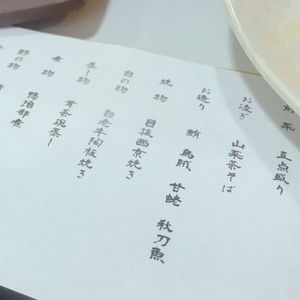 前菜 五点盛り
お凌ぎ 山菜茶そば
お造り 鮪 烏賊 甘蛯 秋刀魚
焼物 目抜西京焼き
台の物 白老牛陶板焼き
蒸し物 茸茶碗蒸し
煮物 鴨治部煮
酢の物